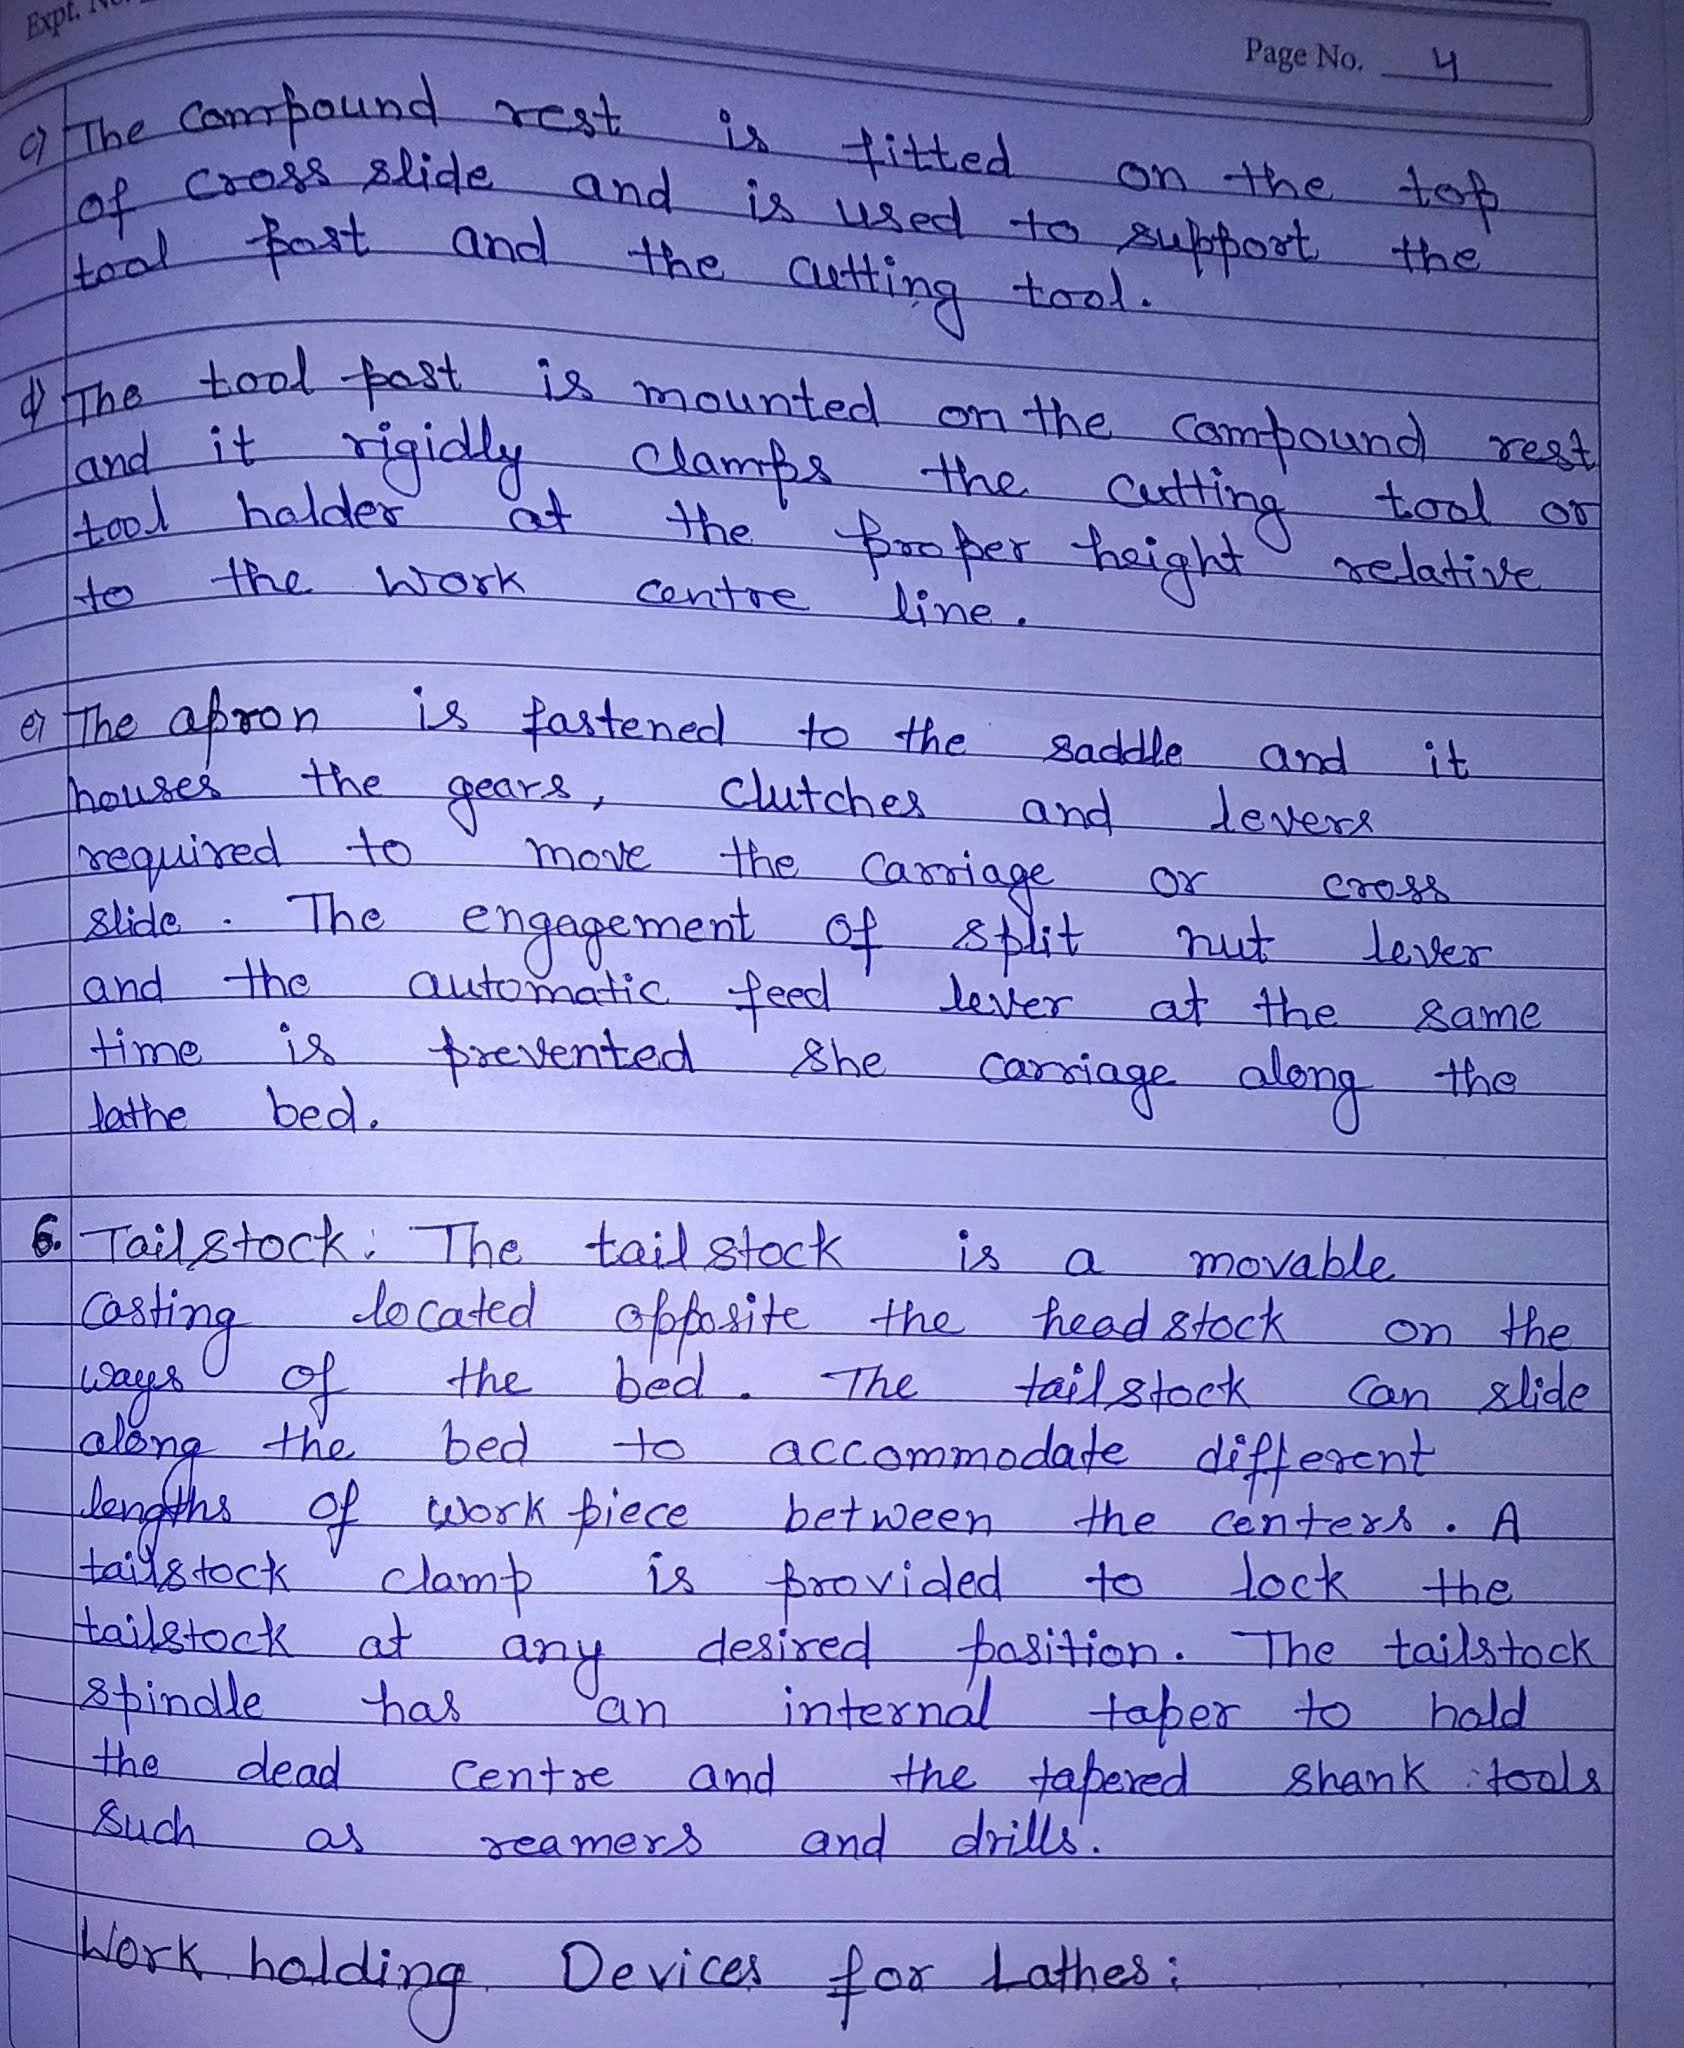 Expt. No.
Page No. 4
c) The compound rest is fitted on the top
of cross slide and is used to support the
tool post and the cutting tool.
d) The tool post is mounted on the compound rest
and it rigidly clamps the cutting tool or
tool holder at the proper height relative
to the work centre line.
e) The apron is fastened to the saddle and it
houses the gears, clutches and levers
required to move the carriage or cross
slide. The engagement of split nut lever
and the automatic feed lever at the same
time is prevented she carriage along the
lathe bed.
6. Tailstock: The tailstock is a movable
casting located opposite the headstock on the
ways of the bed. The tailstock can slide
along the bed to accommodate different
lengths of workpiece between the centers. A
tailstock clamp is provided to lock the
tailstock at any desired position. The tailstock
spindle has an internal taper to hold
the dead centre and the tapered shank tools
such as reamers and drills.
Work holding Devices for Lathes: